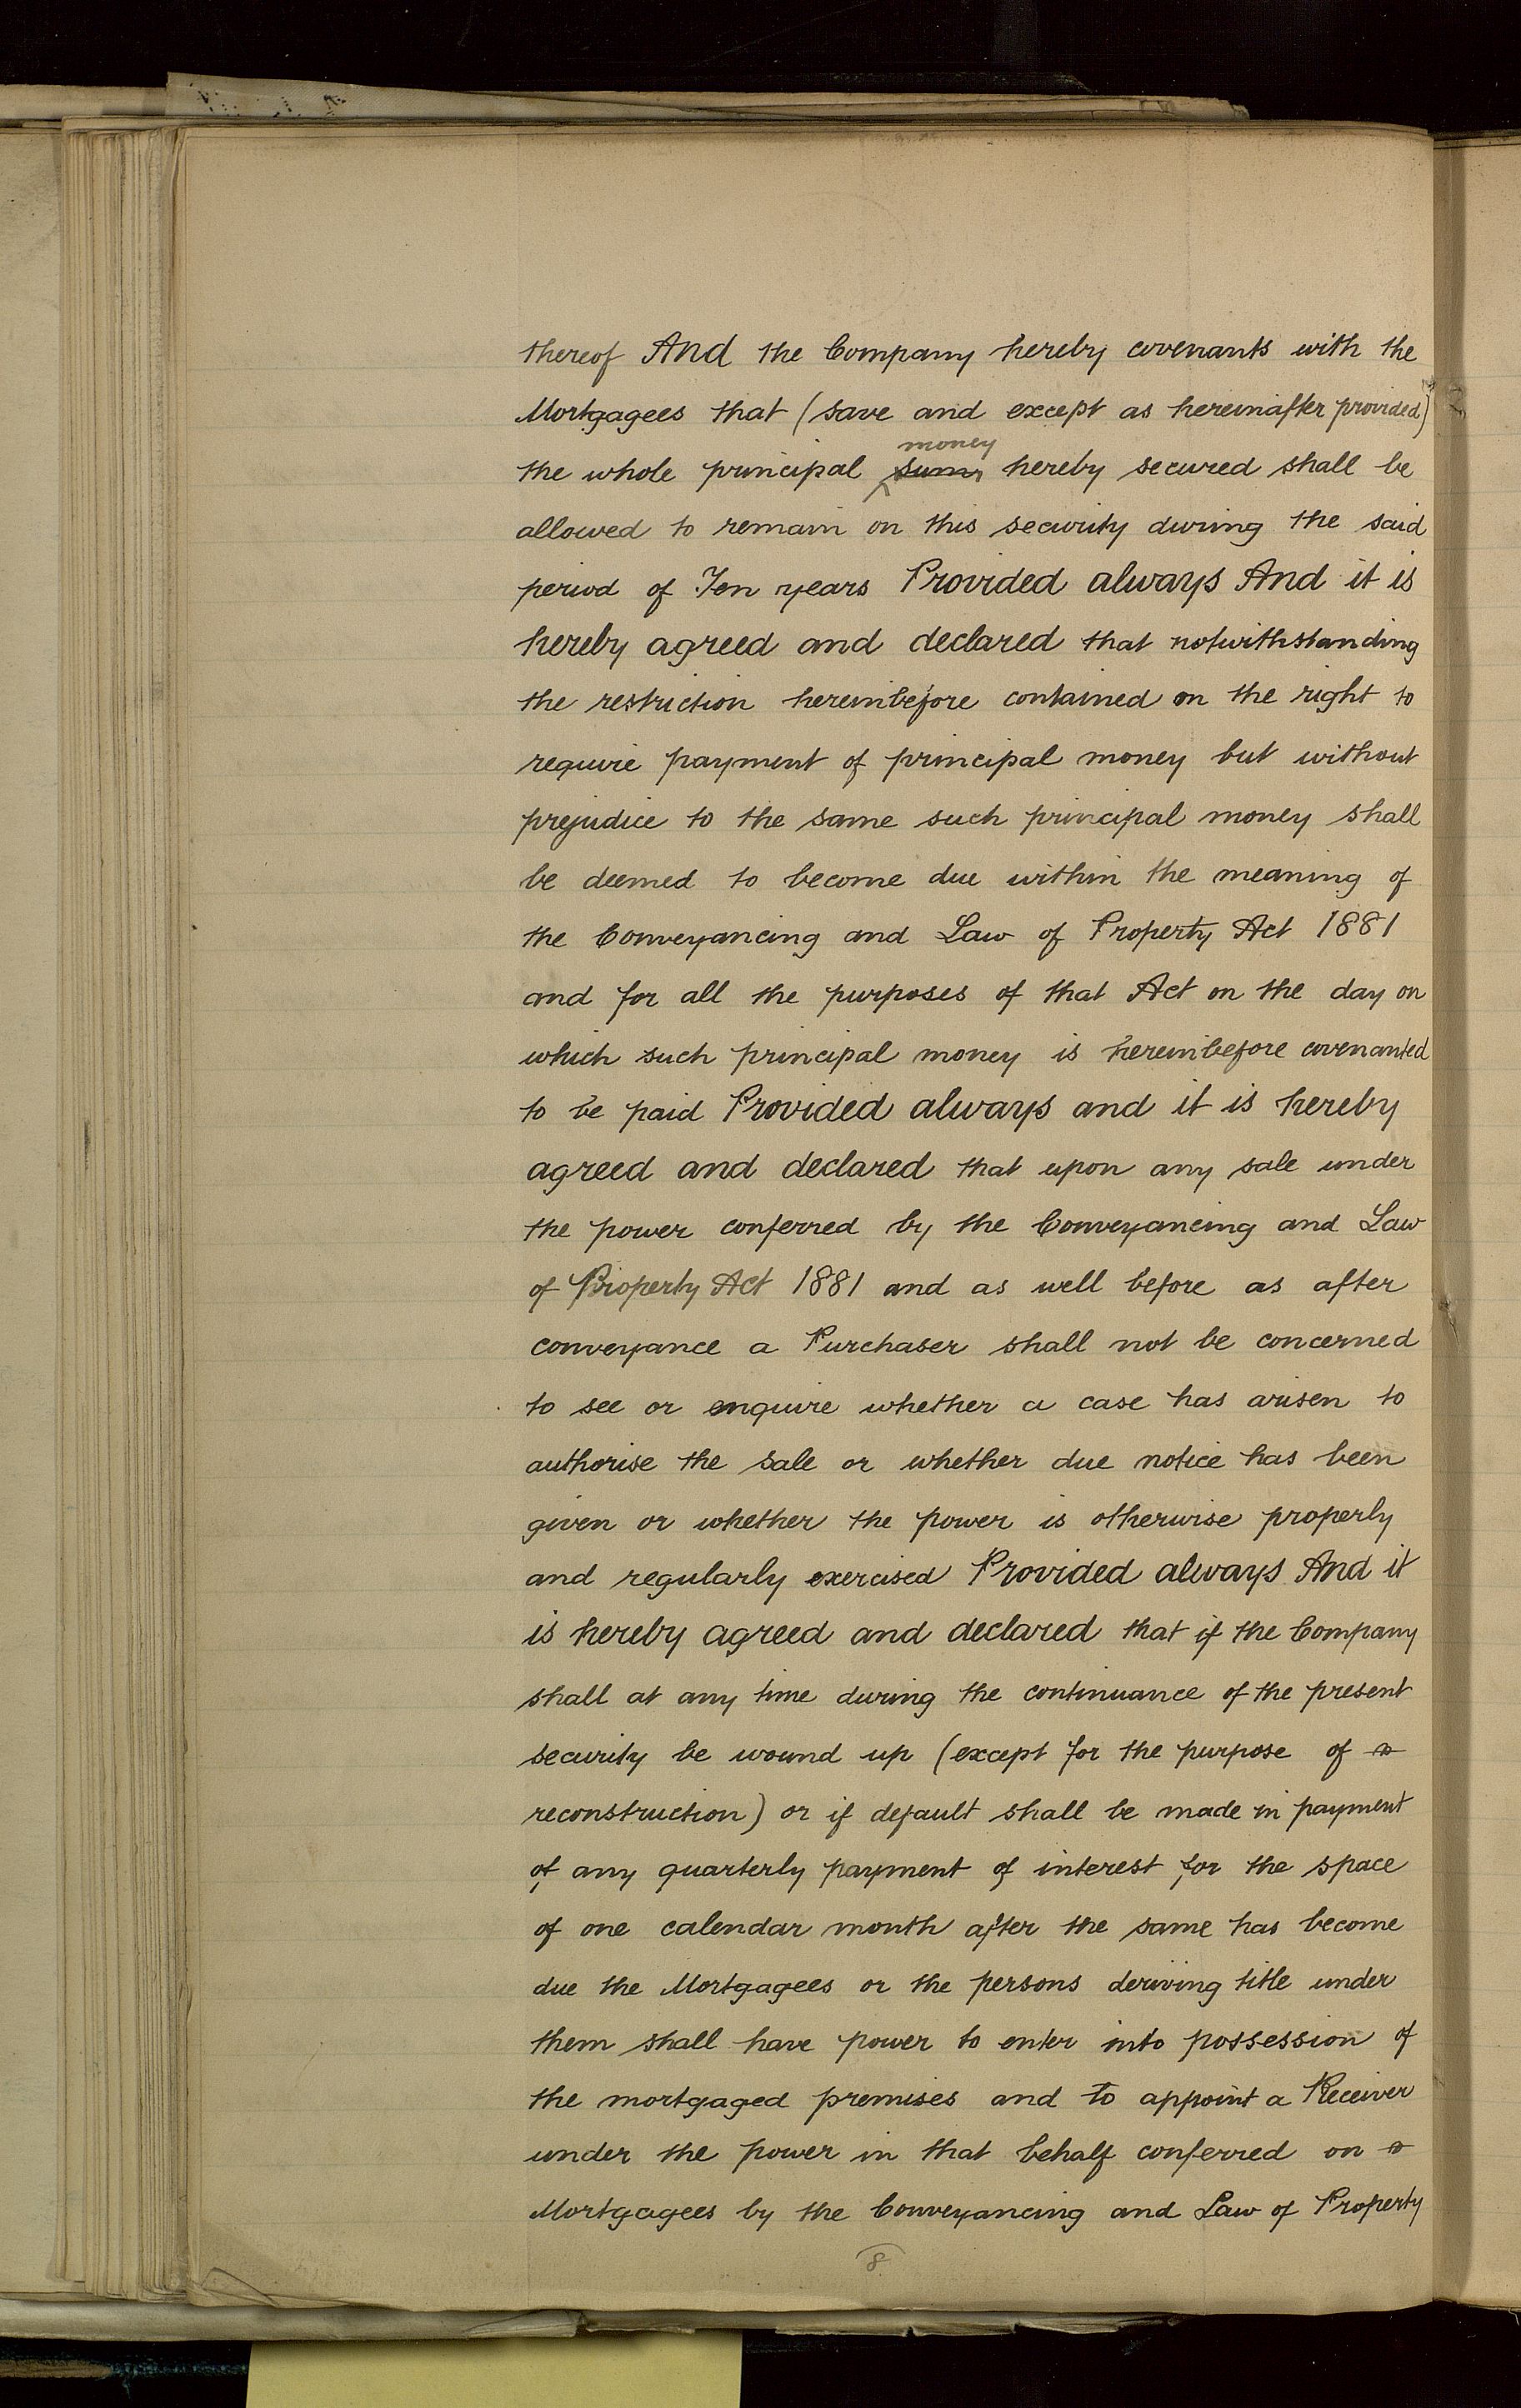 thereof And the Company hereby covenants with the
Mortgagees that (save and except as hereinafter provided)
money
the whole principal sums hereby secured shall be
allowed to remain on this security during the said
period of Ten years Provided always And it is
hereby agreed and declared that notwithstanding
the restriction hereinbefore contained on the right to
require payment of principal money but without
prejudice to the same such principal money shall
be deemed to become due within the meaning of
the Conveyancing and Law of Property Act 1881
and for all the purposes of that Act on the day on
which such principal money is hereinbefore covenanted
to be paid Provided always and it is hereby
agreed and declared that upon any sale under
the power conferred by the Conveyancing and Law
of Property Act 1881 and as well before as after
conveyance a Purchaser shall not be concerned
to see or enquire whether a case has arisen to
authorise the sale or whether due notice has been
given or whether the power is otherwise properly
and regularly exercised Provided always And it
is hereby agreed and declared that if the Company
shall at any time during the continuance of the present
security be wound up (except for the purpose of
reconstruction) or if default shall be made in payment
of any quarterly payment of interest for the space
of one calendar month after the same has become
due the Mortgagees or the persons deriving title under
them shall have power to enter into possession of
the mortgaged premises and to appoint a Receiver
under the power in that behalf conferred on
Mortgagees by the Conveyancing and Law of Property
8